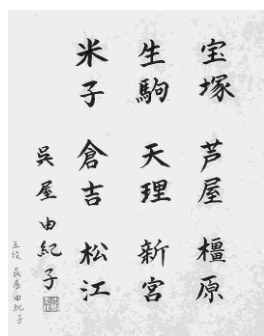 宝塚 芦屋 橿原
生駒 天理 新宮
米子 倉吉 松江
呉屋由紀子
呉屋由紀子